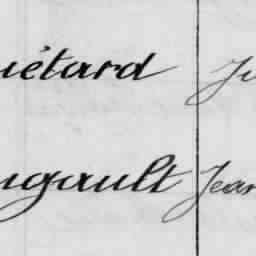 uétard Ju
ugault Jean